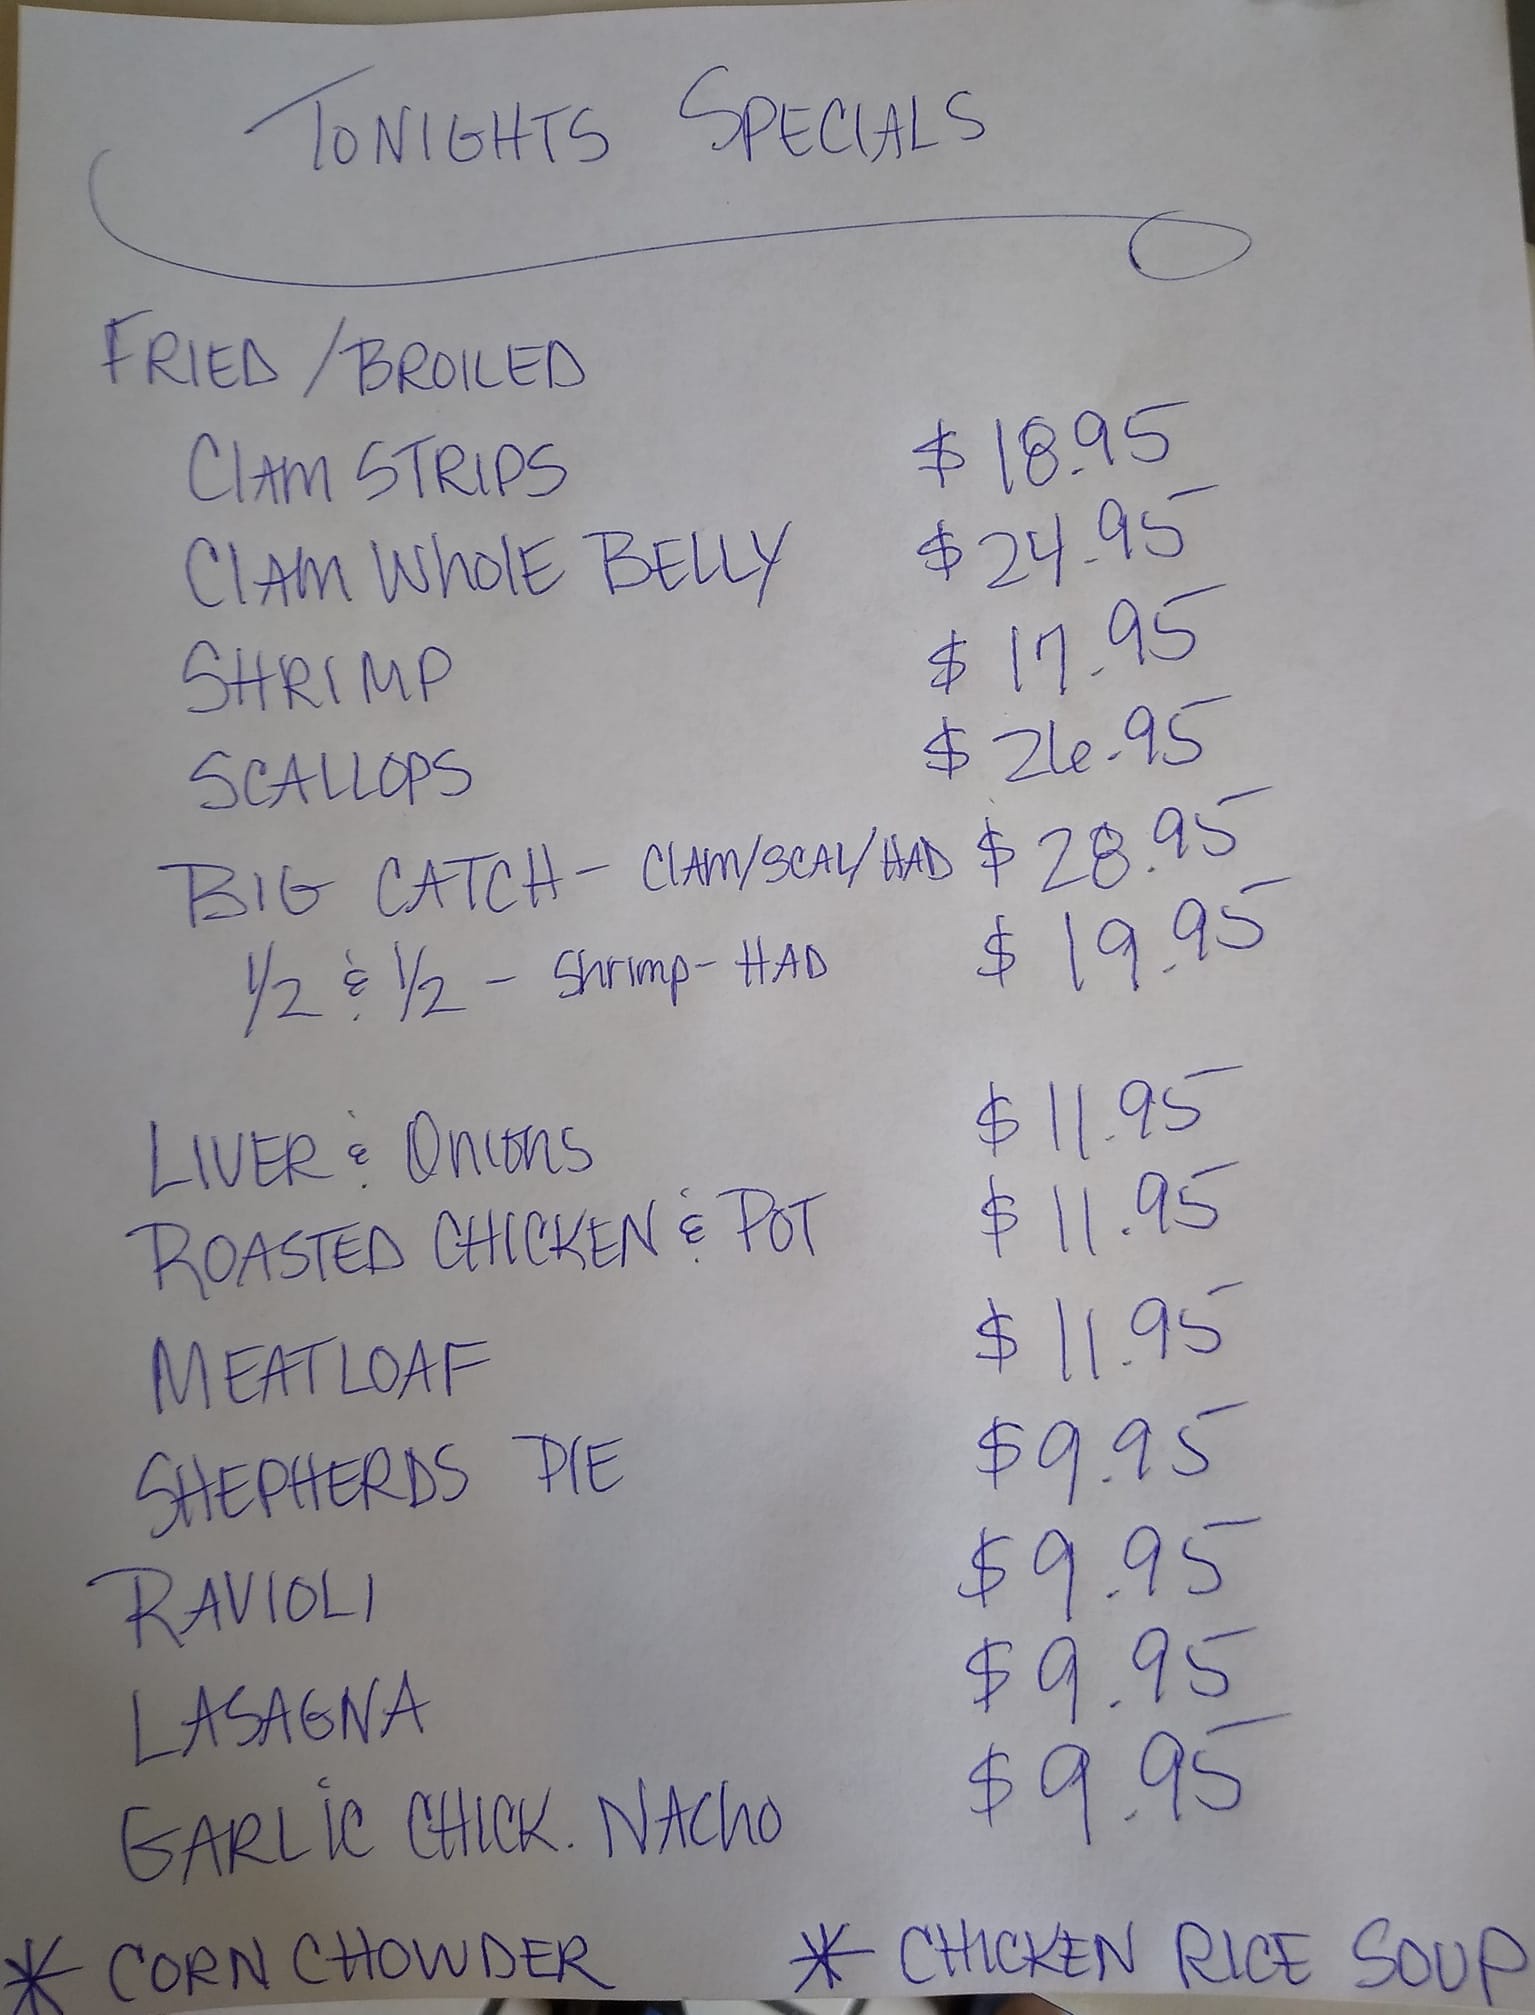 TONIGHTS SPECIALS
FRIED / BROILED
ClAM STRIPS $ 18.95
ClAM WholE BELLY $ 24.95
SHRIMP $ 17.95
SCALLOPS $ 26.95
BIG CATCH - ClAM/SCAL/HAD $ 28.95
1/2 & 1/2 - Shrimp - HAD $ 19.95
LIVER & Onions $ 11.95
ROASTED CHICKEN & POT $ 11.95
MEATLOAF $ 11.95
SHEPHERDS PIE $ 9.95
RAVIOLI $ 9.95
LASAGNA $ 9.95
GARLiC CHICK. NAChO $ 9.95
* CORN CHOWDER * CHICKEN RICE SOUP